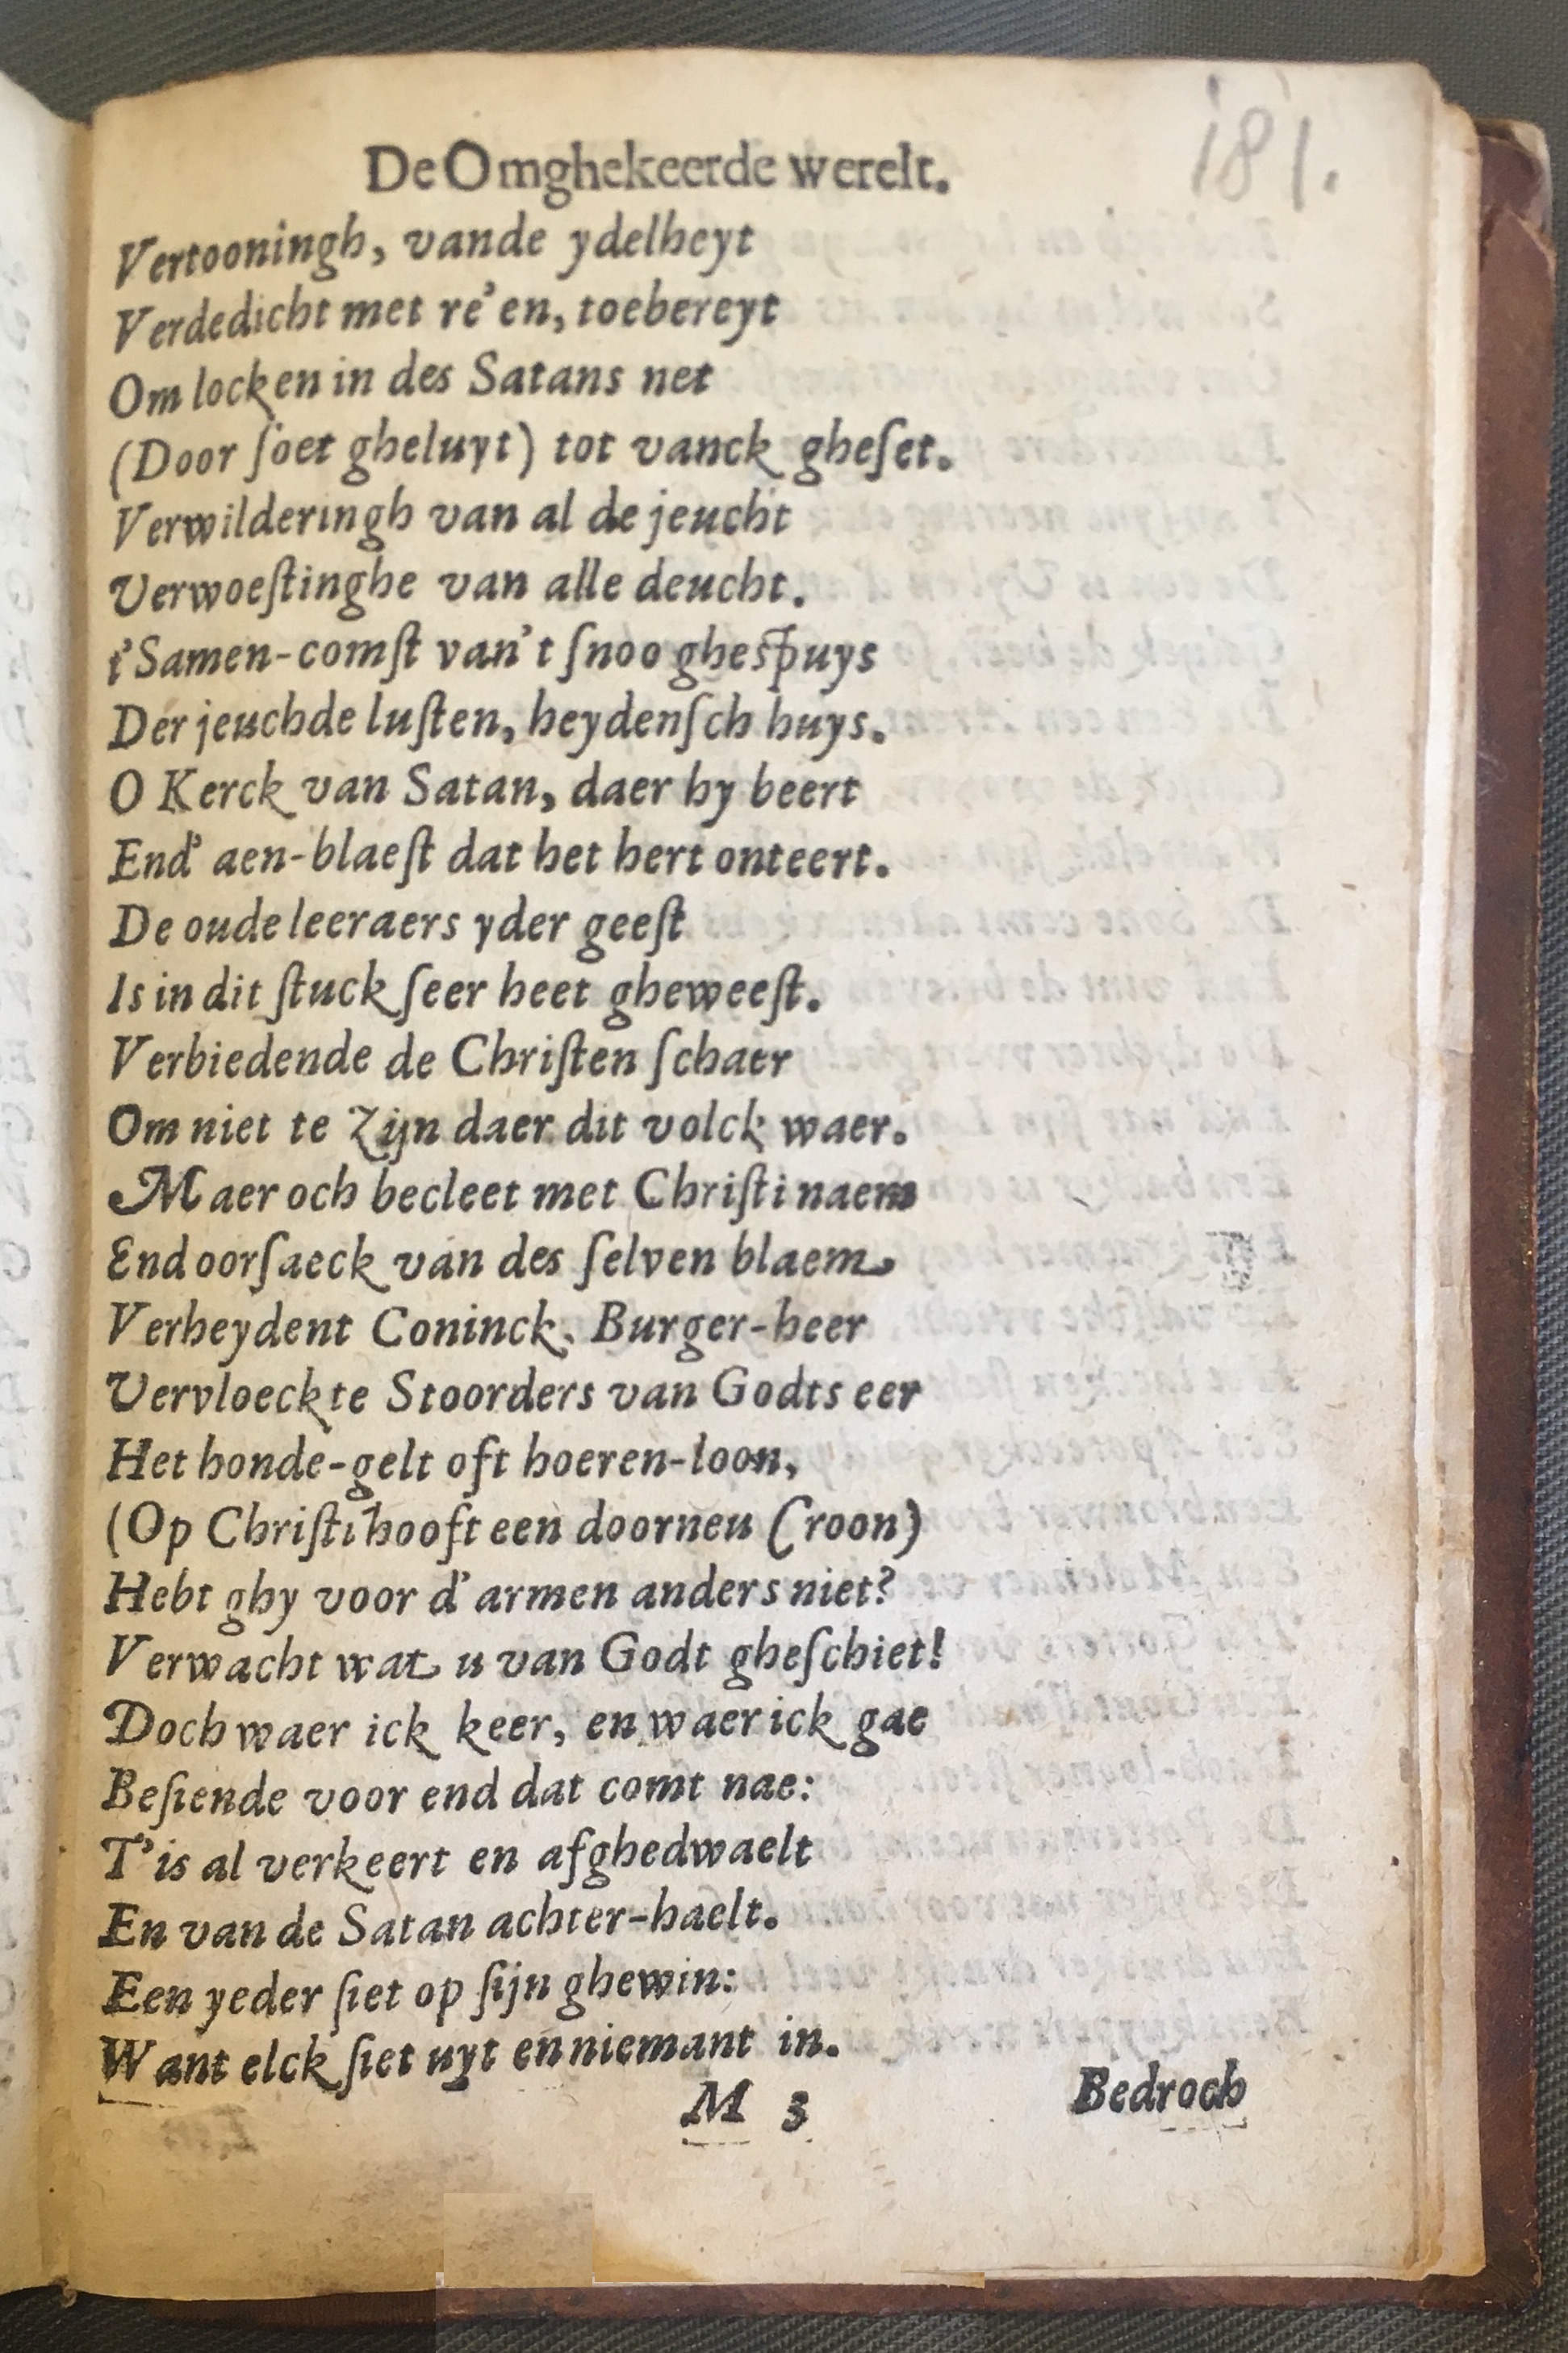 181.
De Omghekeerde werelt.
Vertooningh, vande ydelheyt
Verdedicht met re'en, toebereyt
Om locken in des Satans net
(Door ſoet gheluyt) tot vanck gheſet.
Verwilderingh van al de jeucht
Verwoeſtinghe van alle deucht.
t'Samen-comſt van't ſnoo gheſpuys
Der jeuchde luſten, heydenſch huys.
O Kerck van Satan, daer hy beert
End' aen-blaeſt dat het hert onteert.
De oude leeraers yder geeſt
Is in dit ſtuck ſeer heet gheweeſt.
Verbiedende de Chriſten ſchaer
Om niet te Zijn daer dit volck waer.
Maer och becleet met Chriſti naem
End oorſaeck van des ſelven blaem.
Verheydent Coninck, Burger-heer
Vervloeckte Stoorders van Godts eer
Het honde-gelt oft hoeren-loon,
(Op Chriſti hooft een doorneu Croon)
Hebt ghy voor d'armen anders niet?
Verwacht wat u van Godt gheſchiet!
Doch waer ick keer, en waer ick gae
Beſiende voor end dat comt nae:
T'is al verkeert en afghedwaelt
En van de Satan achter-haelt.
Een yeder ſiet op ſijn ghewin:
Want elck ſiet uyt en niemant in.
M 3
Bedroch